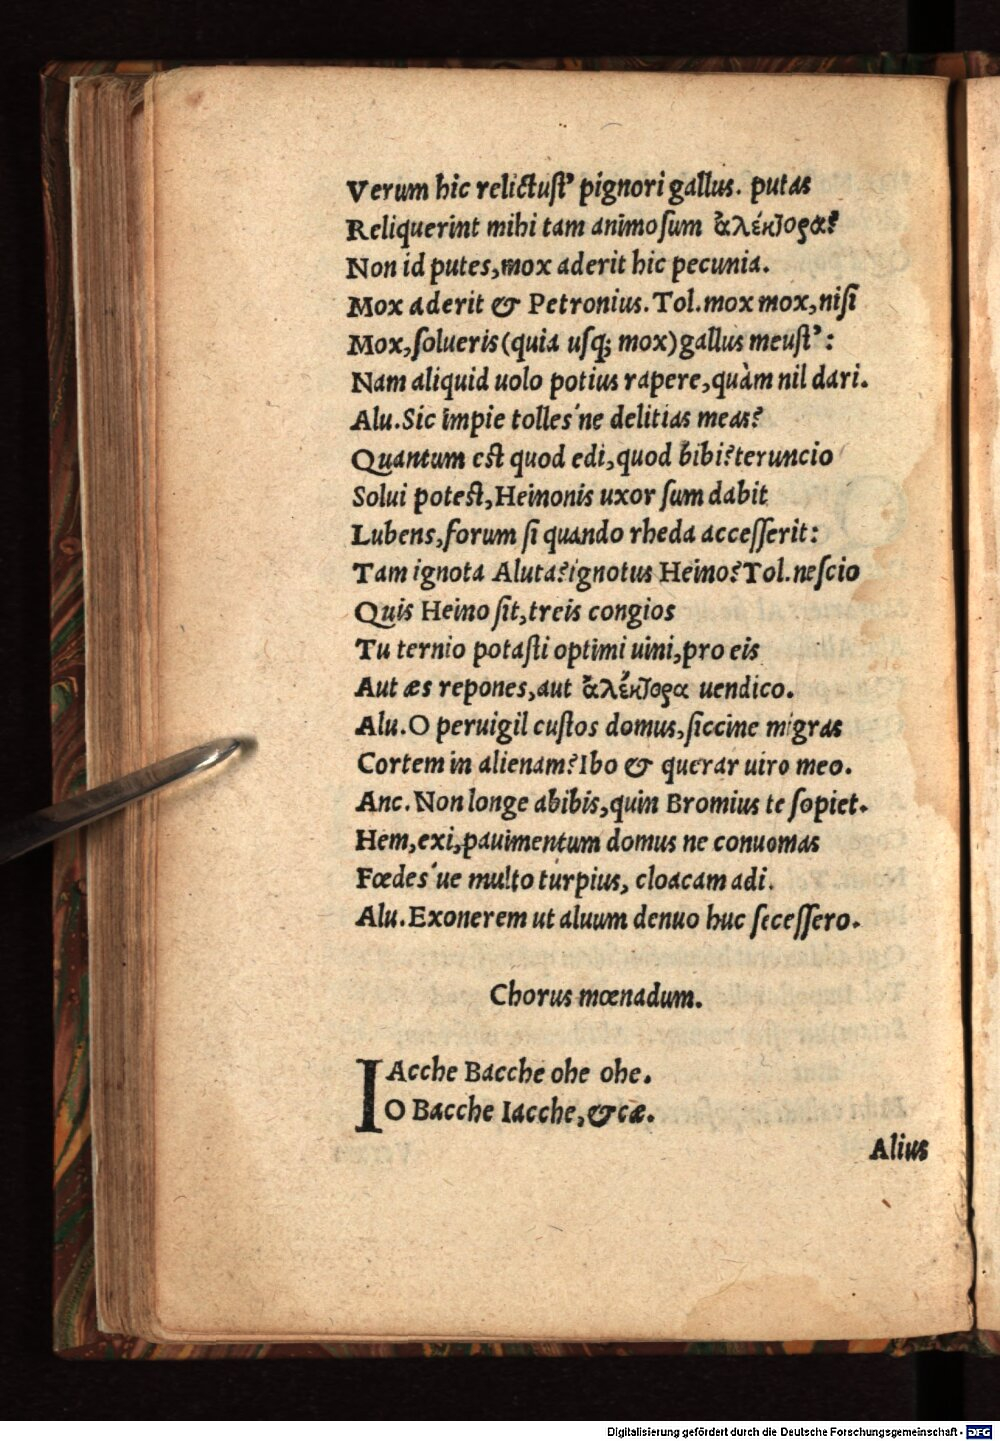 Verum hic relictust’ pignori gallus. putas
Reliquerint mihi tam animosum ἀλέκτορα?
Non id putes, mox aderit hic pecunia.
Mox aderit & Petronius. Tol. mox mox, nisi
Mox, solueris (quia usq; mox) gallus meust’:
Nam aliquid uolo potius rapere, quàm nil dari.
Alu. Sic impie tolles´ne delitias meas?
Quantum est quod edi, quod bibi? teruncio
Solui potest, Heinonis uxor sum dabit
Lubens, forum si quando rheda accesserit:
Tam ignota Aluta? ignotus Heino? Tol. nescio
Quis Heino sit, treis congios
Tu ternio potasti optimi uini, pro eis
Aut æs repones, aut ἀλέκτορα uendico.
Alu. O peruigil custos domus, siccine migras
Cortem in alienam? Ibo & querar uiro meo.
Anc. Non longe abibis, quin Bromius te sopiet.
Hem, exi, pauimentum domus ne conuomas
Fœdes´ue multo turpius, cloacam adi.
Alu. Exonerem ut aluum denuo huc secessero.
Chorus mœnadum.
IAcche Bacche ohe ohe.
IO Bacche Iacche, &cæ.
Alius
Digitalisierung gefördert durch die Deutsche Forschungsgemeinschaft - DFG